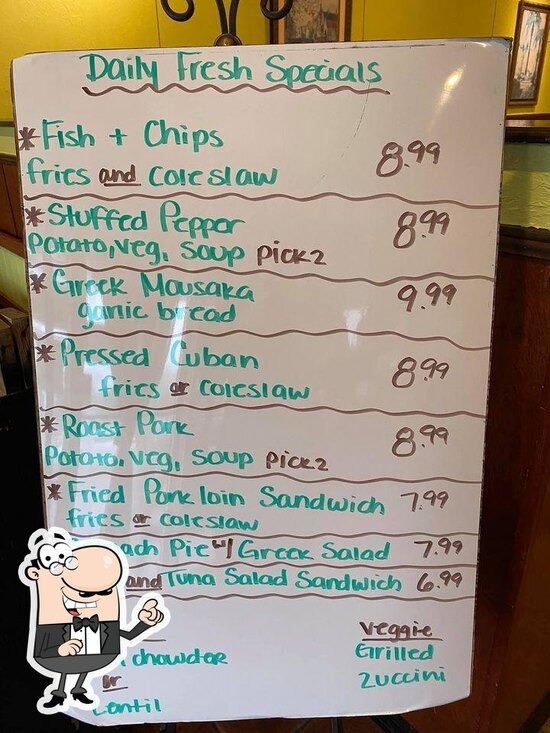 Daily Fresh Specials
*Fish + Chips
fries and coleslaw 8.99
*Stuffed Pepper
Potato, veg, soup pick 2 8.99
*Greek Mousaka 9.99
garlic bread
*Pressed Cuban 8.99
fries or coleslaw
*Roast Pork 8.99
Potato, veg, soup pick 2
*Fried Pork loin Sandwich 7.99
fries or coleslaw
Pie w/ Greek Salad 7.99
and Tuna Salad Sandwich 6.99
veggie
chowder Grilled
or zuccini
Lentil